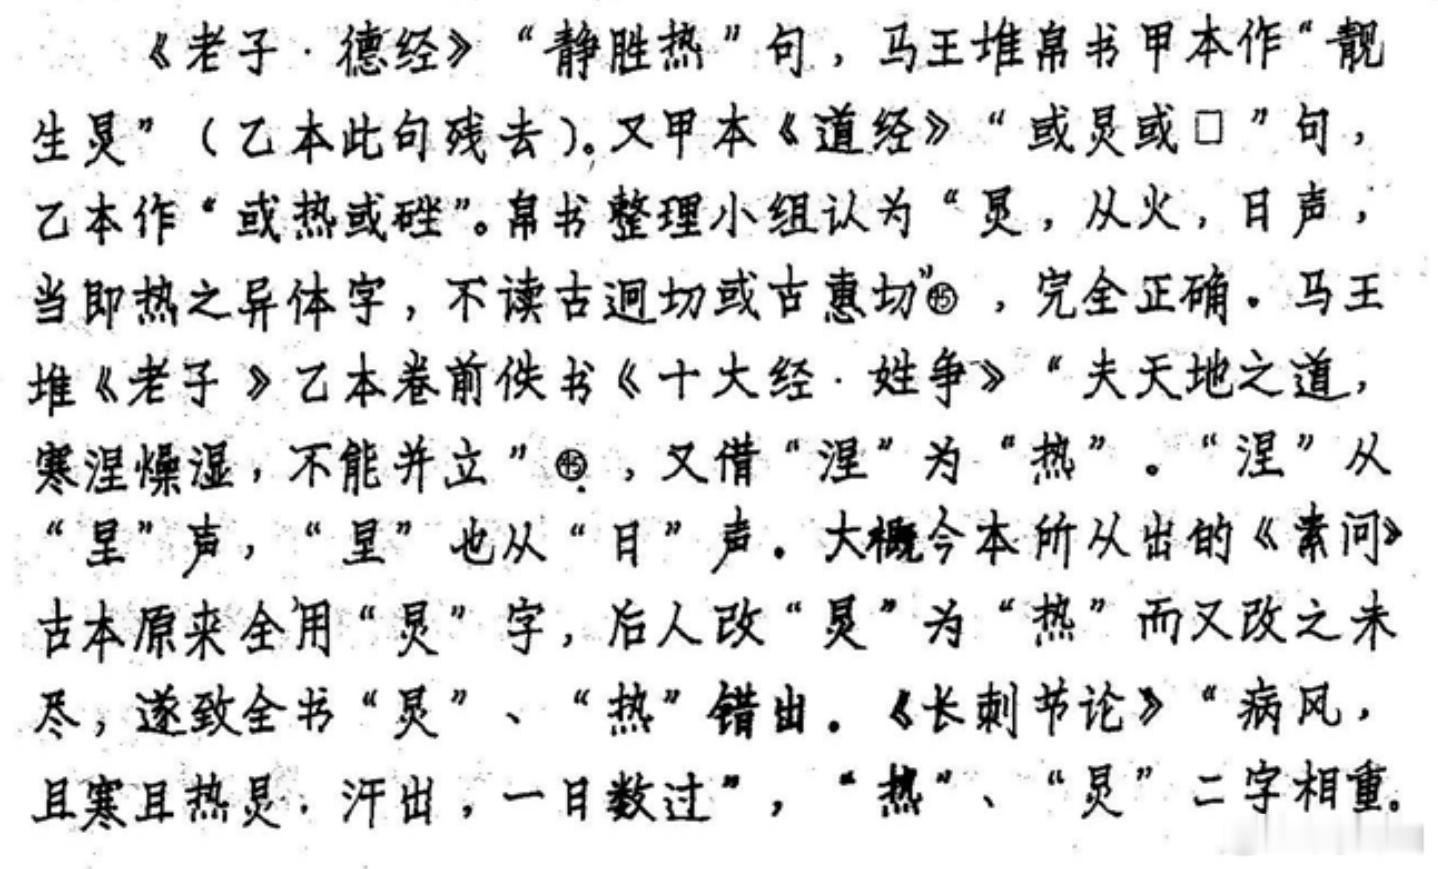 《老子·德经》“静胜热”句，马王堆帛书甲本作“靓
生炅”（乙本此句残去）。又甲本《道经》“或炅或□”句，
乙本作“或热或䂳”。帛书整理小组认为“炅，从火，日声，
当即热之异体字，不读古迥切或古惠切”㊺，完全正确。马王
堆《老子》乙本卷前佚书《十大经·姓争》“夫天地之道，
寒涅燥湿，不能并立”㊺，又借“涅”为“热”。“涅”从
“圼”声，“圼”也从“日”声。大概今本所从出的《素问》
古本原来全用“炅”字，后人改“炅”为“热”而又改之未
尽，遂致全书“炅”、“热”错出。《长刺节论》“病风，
且寒且热炅，汗出，一日数过”，“热”、“炅”二字相重。